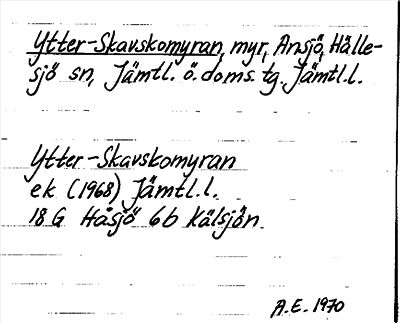 Ytter-Skavskomyran, myr, Ansjö, Hälle-
sjö sn, Jämtl. ö. doms. tg. Jämtl. l.
Ytter-Skavskomyran
ek (1968) Jämtl. l.
18 G Håsjö 6b Kälsjön.
A.E. 1970